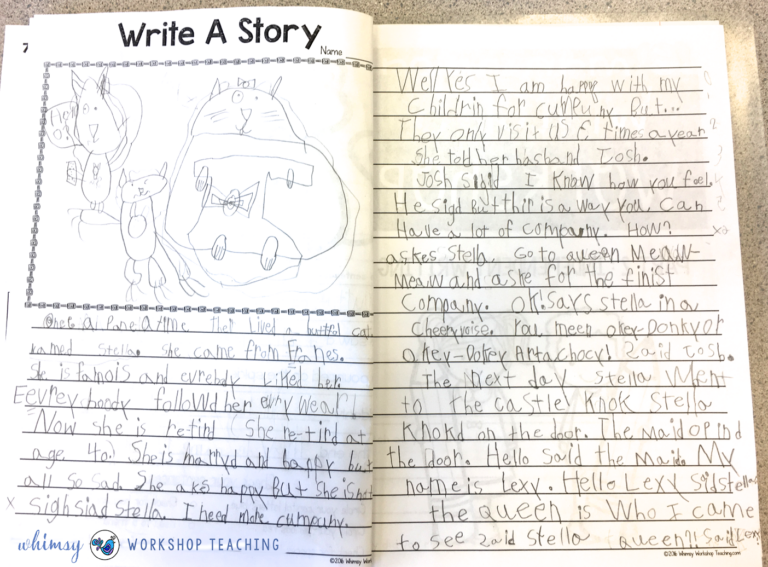 7
Write A Story
Name
Once a Pone a time ther lived a buttful cat
named Stella. She came from Franes.
She is famois and evrebdy Liked her.
Eevrey boody followd her evry wear!
Now she is retird She re-tird at
age 40. She is marryd and happy but
all so sad. She aks happy But she is not
x sigh siad stella I need more cumpany.
whimsy WORKSHOP TEACHING
©2016 Whimsy Work
Well Yes I am happy with my
Childrin for cumpuny But...
They only visit us 6 times a year
She told her hasband Josh.
Josh said I Know how you feel.
He sigd But thir is a way you can
Have a lot of company. How?
askes Stella. Go to queen Meaw-
Meaw and aske for the finist
Company. OK! says stella in a
Cheery voise. You meen okey-Donky or
okey-Dokey Artachocy! Zaid Josh.
The Next day Stella Went
to The castle! Knok Stella
Knokd on the door. The Maid opind
the door. Hello Said the Maid. My
name is Lexy. Hello Lexy Said stella
the queen is Who I came
to see zaid Stella Queen?!! Said Lexy
©2016 Whimsy Workshop Teaching.com